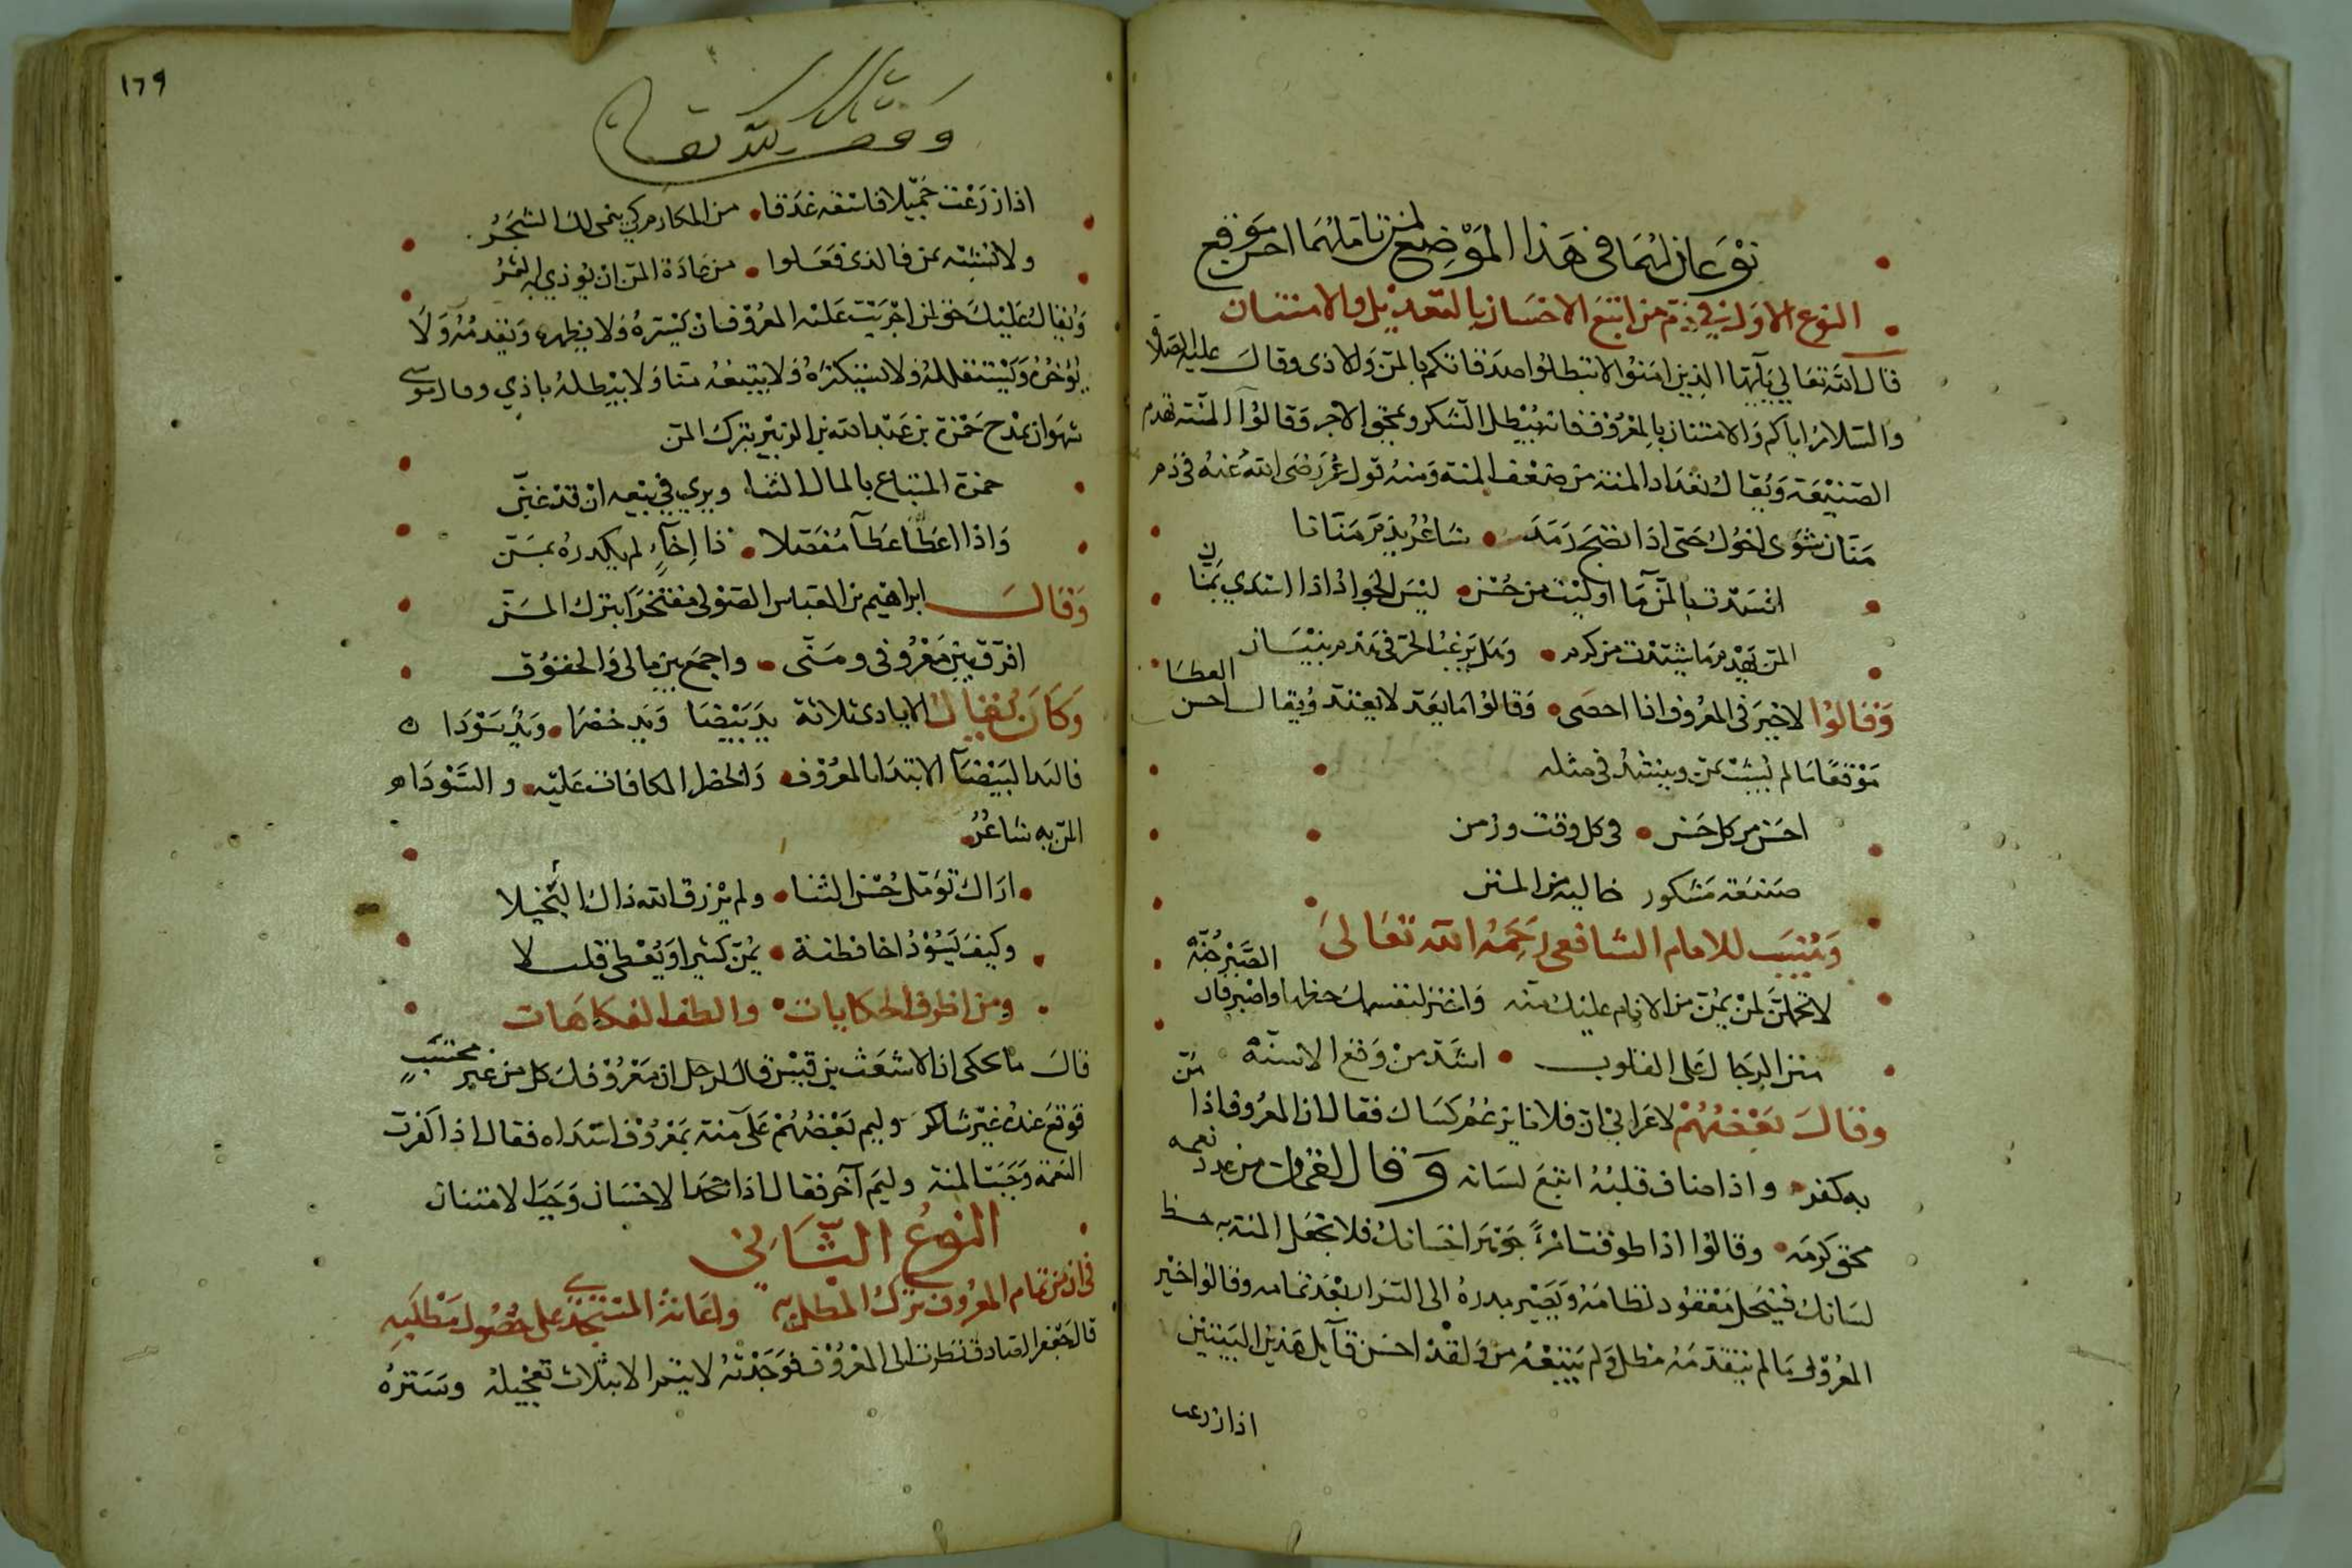 نوعان لهما في هذا الموضع لمن تاملهما احسن موقع
النوع الاول في ذم من اتبع الاحسان بالتعديل والامتنان
قال الله تعالى يايها الذين امنوا لا تبطلوا صدقاتكم بالمن والاذى وقال عليه الصلاة
والسلام اياكم والامتنان بالمعروف فانه يبطل الشكر ويمحق الاجر وقالوا المنة تهدم
الصنيعة ويقال تعداد المنة من ضعف المنة ومنه قول عمر رضى الله عنه في ذم
منان شوى اخوك حتى اذا نضج رمد شاعر يذم منانا
افسدت بالمن ما اوليت من حسن ليس الجواد اذا اسدي بمنان
المن يهدم ما شيدت من كرم وهل يرغب الحر في هدم بنيان
وقالوا لا خير في المعروف اذا احصى وقالوا ما يعد لا يعتد ويقال احسن العطايا
موقعا ما لم يشب بمن وينشد في مثله
احسن من كل حسن في كل وقت وزمن
صنيعة مشكور خالية من المنن
وينسب للامام الشافعى رحمه الله تعالى
لا تحملن لمن يمن من الانام عليك منه واختر لنفسك حظها واصبر فان الصبر جنه
منن الرجال على القلوب اشد من وقع الاسنة
وقال بعضهم لاعرابي ان فلانا يزعم كساك فقال ان المعروف اذا منّ
به كفر واذا ضاق قلبه اتبع لسانه وقال لقمان من عدد نعمه
محق كرمه وقالوا اذا طوقت امرأ جوهر احسانك فلا تجعل المنة به حظ
لسانك فينحل معقود نظامه ويصير بدره الى السرار بعد تمامه وقالوا خير
المعروف ما لم يتقدمه مطل ولم يتبعه من ولقد احسن قآيل هذين البيتين
اذا زرعت
١٦٩
وقف لله تعالى
اذا زرعت جميلا فاسقه غدقا من المكارم كي ينمى لك الشجر
ولا تشنه بمن فالذى فعلوا من عادة المن ان يوذي به الثمر
ويقال عليك حق لمن اجريت عليه المعروف ان يستره ولا يظهره ويقدمه ولا
يؤخره ويستقلله ولا يستكثره ولا يتبعه منا ولا يبطله باذي وقال موسى
شهوان يمدح حمزة بن عبد الله بن الزبير بترك المن
حمزة المبتاع بالمال الثنا ويري في بيعه ان قد غبن
واذا اعطا عطآ مفضلا ذا اخآء لم يكدره بمن
وقال ابراهيم بن العباس الصولى مفتخرا بترك المن
افرق بين معروفى ومنى واجمع بين مالى والحقوق
وكان يقال الايادى ثلاثة يد بيضا ويد خضرا ويد سودا
فاليد البيضآ الابتدا بالمعروف والخضرا المكافات عليه والسودا
المن به شاعر
اراك تؤمل حسن الثنا ولم يرزق الله ذاك البخيلا
وكيف يسود اخا فطنة يمن كثيرا ويعطى قليلا
ومن اظرف الحكايات والطف الفكاهات
قال ما يحكى ان الاشعث بن قيس قال لرجل ان معروفك كل من غير محتسب
فوقع عند غير شاكر وليم بعضهم على منة بمعروف اسداه فقال اذا كفرت
النعمة وجبت المنة وليم آخر فقال اذا جحد الاحسان وجب الامتنان
النوع الثاني
فى ان من تمام المعروف ترك المطل به واعانة المستنجد على حصول مطلبه
قال جعفر الصادق نظرت الى المعروف فوجدته لا يتم الا بثلاث تعجيله وستره